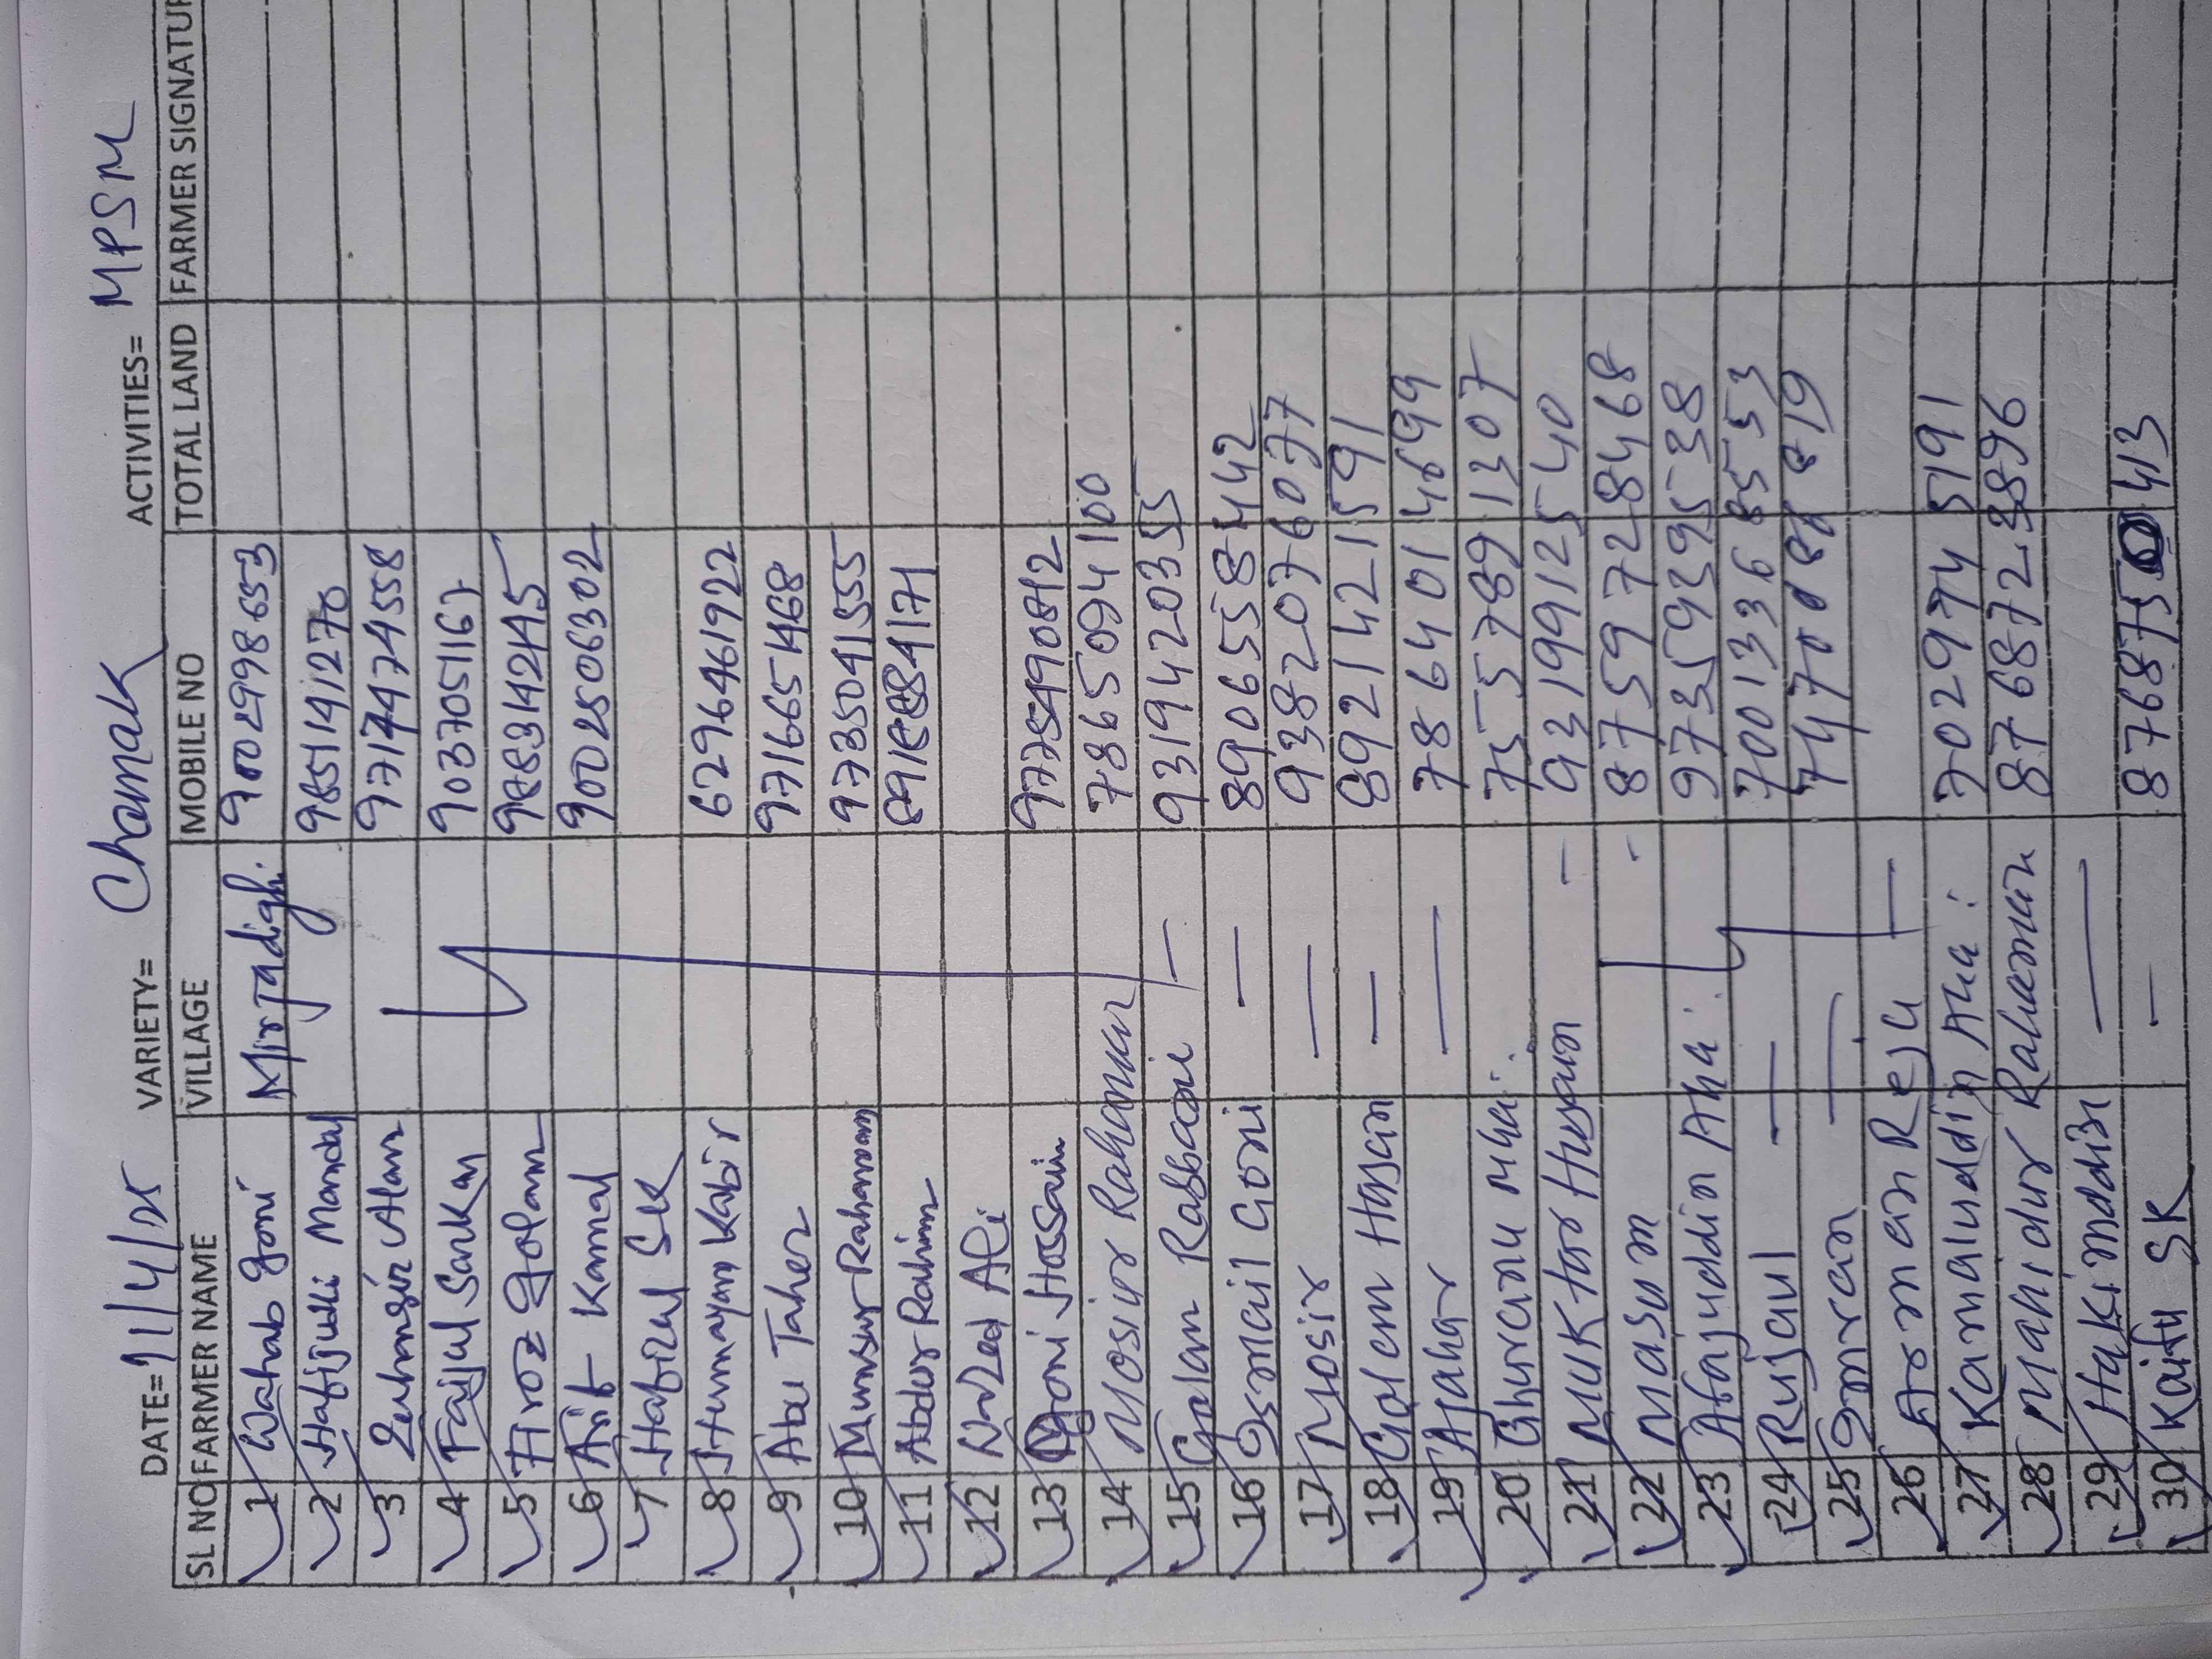 DATE= 11/4/25 VARIETY= Chamak ACTIVITIES= MPSM
SL NO FARMER NAME VILLAGE MOBILE NO TOTAL LAND FARMER SIGNATUR
1 Wahab Goni Mirjadighi. 9002998653
2 Habijuddi Mandal 9851141270
3 Alam 9717474558
4 Faijul Sarkar 9037051167
5 Firoz Golam
6 Arif Kamal 9002506302
7 Habizul SK
8 Humayun Kabir 6296461922
9 Abu Taher 9716651468
10 Munsur Rahaman 9735041555
11 Abdur Rahim
12 Ali
13 Goni Hossain 9775490812
14 Mosiur Rahaman 7865094100
15 Golam Rabbani 9319420355
16 Ismail Goni 8906558442
17 Mosir 9382076077
18 Golem Hasan 8921421591
19 Ajahar 7864014699
20 Bhuranu 7557891307
21 Muktar Husyan 9319912540
22 Masum 8759728468
23 Afajuddin Aha. 9735929538
24 Rujaul 70013368553
25 Imran
26 Arman Reja
27 Kamaluddin Aha: 7029745191
28 Mahidur Raheman
29 Hakimddin
30 Kaifu SK